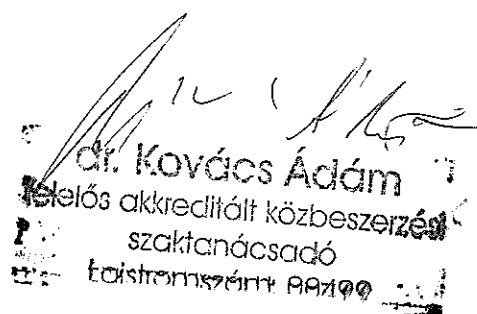 dr. Kovács Ádám
felelős akkreditált közbeszerzési
szaktanácsadó
Lajstromszám: